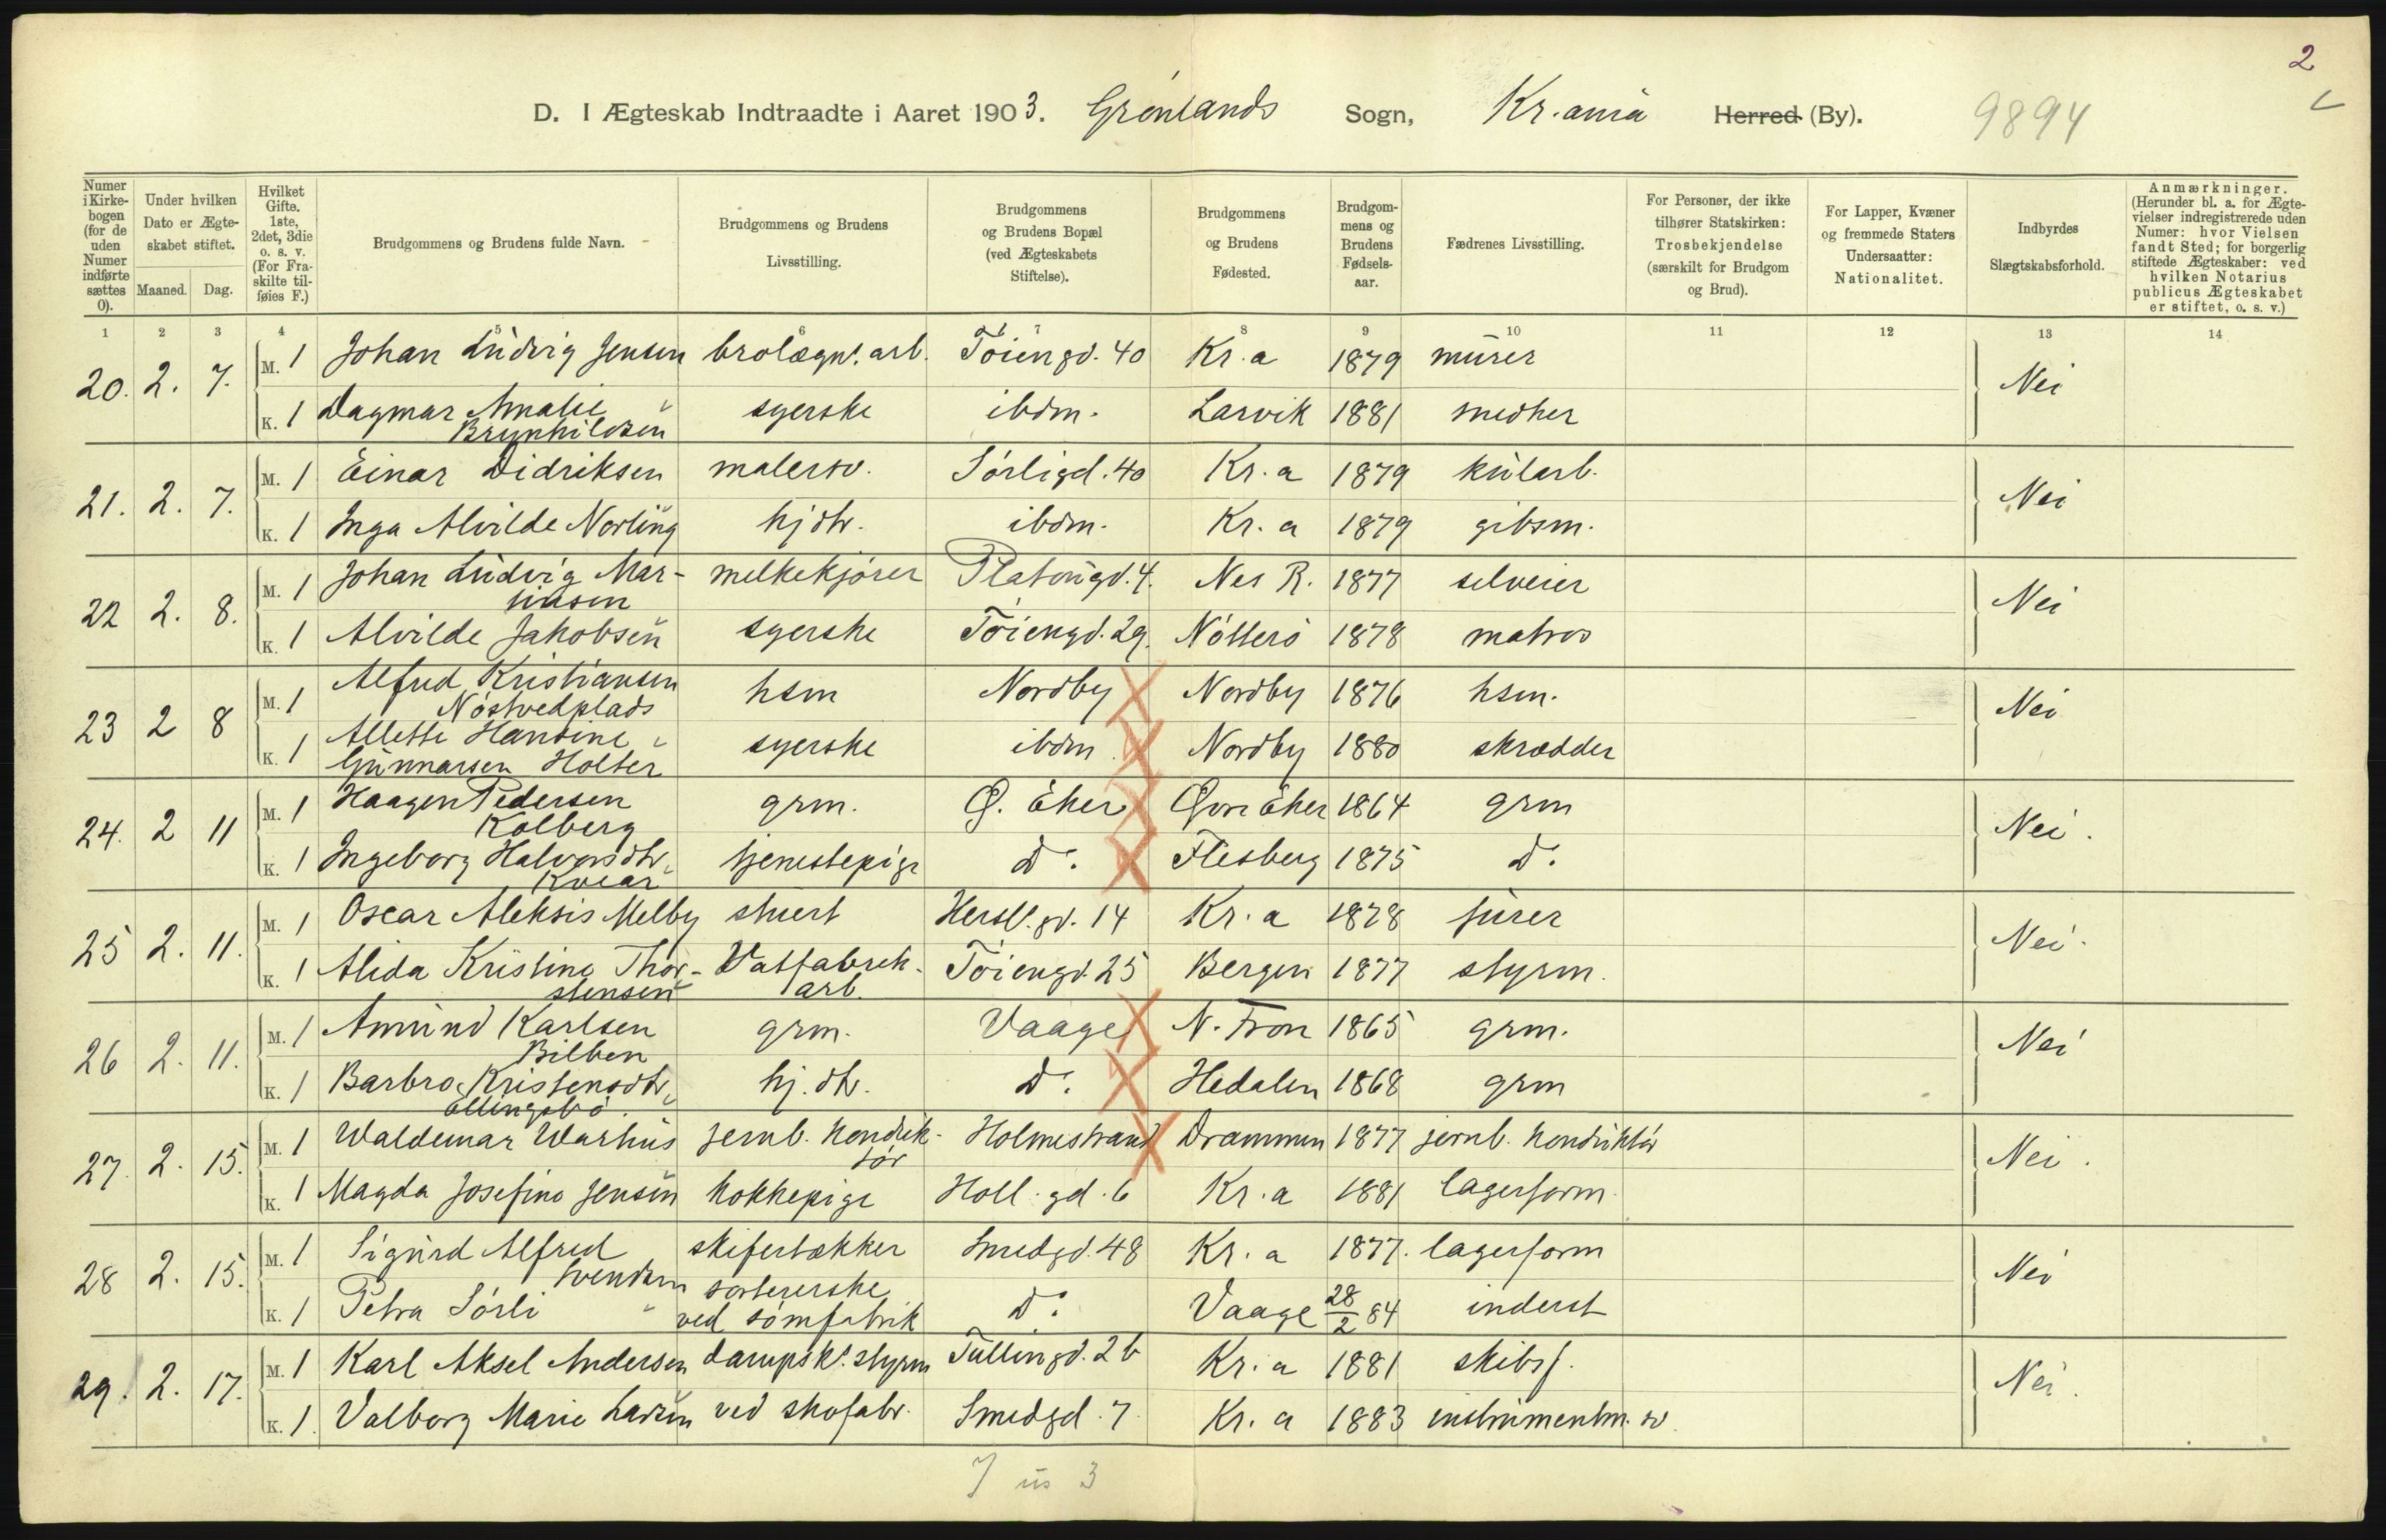 2
D. I Ægteskab Indtraadte i Aaret 1903. Grønlands Sogn, Kr.ania Herred (By). 9894
Numer i Kirke-bogen (for de uden Numer indførte sættes 0).
Under hvilken Dato er Ægte-skabet stiftet.
Maaned. Dag.
Hvilket Gifte. 1ste, 2det, 3die o. s. v. (For Fra-skilte til-føies F.)
Brudgommens og Brudens fulde Navn.
Brudgommens og Brudens Livsstilling.
Brudgommens og Brudens Bopæl (ved Ægteskabets Stiftelse).
Brudgommens og Brudens Fødested.
Brudgom-mens og Brudens Fødsels-aar.
Fædrenes Livsstilling.
For Personer, der ikke tilhører Statskirken: Trosbekjendelse (særskilt for Brudgom og Brud).
For Lapper, Kvæner og fremmede Staters Undersaatter: Nationalitet.
Indbyrdes Slægtskabsforhold.
Anmærkninger. (Herunder bl. a. for Ægte-vielser indregistrerede uden Numer: hvor Vielsen fandt Sted; for borgerlig stiftede Ægteskaber: ved hvilken Notarius publicus Ægteskabet er stiftet, o. s. v.)
1 2 3 4 5 6 7 8 9 10 11 12 13 14
20. 2. 7. M. 1 Johan Ludvig Jensen brolægn. arb. Tøiengd. 40 Kr.a 1879 murer Nei
K. 1 Dagmar Amalie Brynhildsen syerske ibdm. Larvik 1881 smed
21. 2. 7. M. 1 Einar Didriksen malersv. Sørligd. 40 Kr. a 1879 kularb. Nei
K. 1 Inga Alvilde Norling hj dtr. ibdm. Kr. a 1879 gibsm.
22 2. 8. M. 1 Johan Ludvig Mar-tinsen melkekjører Platougd. 4. Nes R. 1877 selveier Nei
K. 1 Alvilde Jakobsen syerske Tøiengd. 29. Nøtterø 1878 matros
23 2 8 M. 1 Alfred Kristiansen Nøstvedplads hsm Nordby Nordby 1876 hsm. Nei
K. 1 Allette Hansine Gunnarsen Holter syerske ibdm Nordby 1880 skrædder
24. 2 11 M. 1 Haagen Pedersen Kolberg grm. Ø. Eker Øvre Eker 1864 grm Nei.
K. 1 Ingeborg Halvorsdtr. tjenestepige Do. Flesberg 1875 Do.
25 2. 11. M. 1 Oscar Aleksis Melby stuert Hersl. gd. 14 Kr. a 1878 furer Nei.
K. 1 Alida Kristine Thor-stensen Vatfabrik-arb. Tøiengd. 25 Bergen 1877 styrm.
26 2. 11. M. 1 Amund Karlsen Bilben grm. Vaage N. Fron 1865 grm. Nei
K. 1 Barbro Kristensdtr. Ellingsbø. hj. dtr. Do. Hedalen 1868 grm
27. 2. 15. M. 1 Waldemar Warhus jernb. konduk-tør Holmestrand Drammen 1877 jernb. konduktør Nei.
K. 1 Magda Josefine Jensen kokkepige Holl. gd. 6 Kr. a 1881 lagerform.
28 2. 15. M. 1 Sigurd Alfred Svendsen skifertækker Smedgd. 48 Kr. a 1877. lagerform Nei
K. 1 Petra Sørli sortererske ved sømfabrik Do. Vaage 28/2 84 inderst
29. 2. 17. M. 1 Karl Aksel Andersen dampsk. styrm Tullingd. 2b Kr. a 1881 skibsf. Nei.
K. 1 Valborg Marie Larsen ved skofabr. Smedgd. 7. Kr. a 1883 instrumentm. sv.
7 3